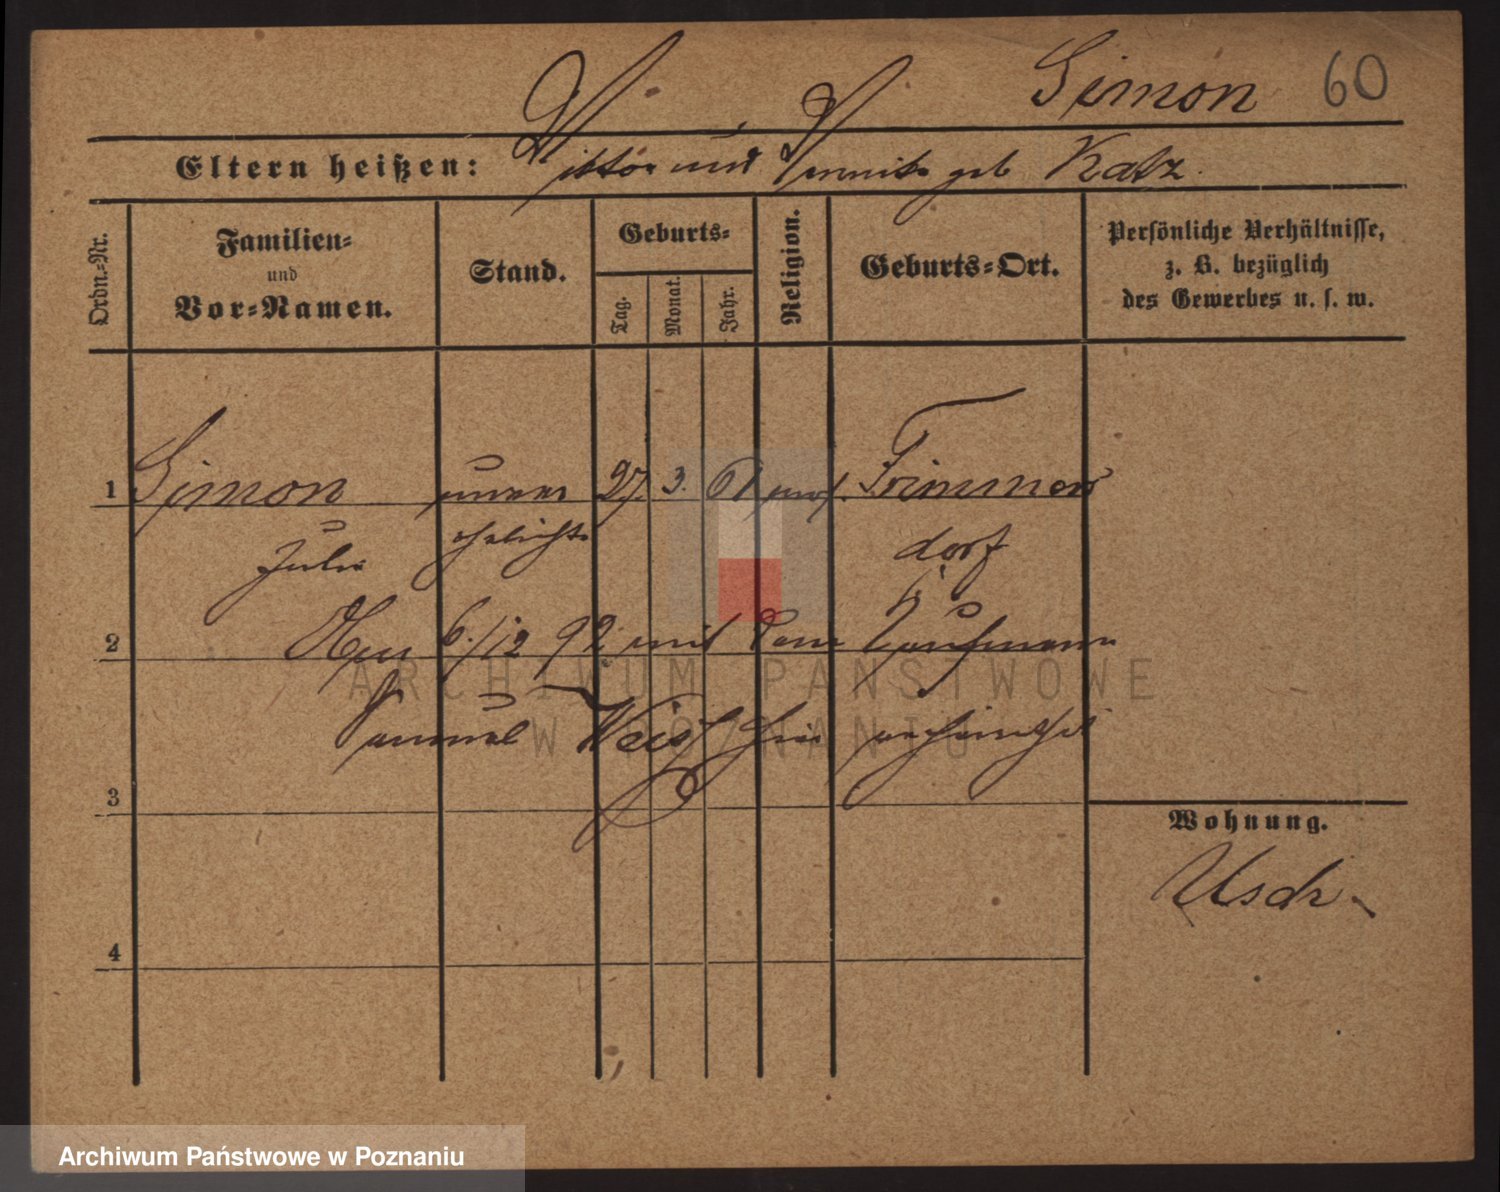 Simon 60
Eltern heißen: Viktor und Jennite geb Katz.
Ordn.=Nr.
Familien=
und
Vor=Namen.
Stand.
Geburts=
Tag.
Monat.
Jahr.
Religion.
Geburts=Ort.
Persönliche Verhältnisse,
z. B. bezüglich
des Gewerbes u. s. w.
1 Simon unver 27. 3. 61 mos. Trimmer
Julie ehelicht dorf
2 6./12 92 mit dem Kaufmann
Samuel Weiss hier verheirathet
3
Wohnung.
Usch
4
ARCHIWUM PAŃSTWOWE
W POZNANIU
Archiwum Państwowe w Poznaniu